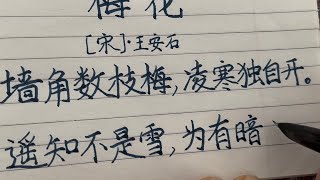 梅花
[宋]·王安石
墙角数枝梅,凌寒独自开。
遥知不是雪,为有暗